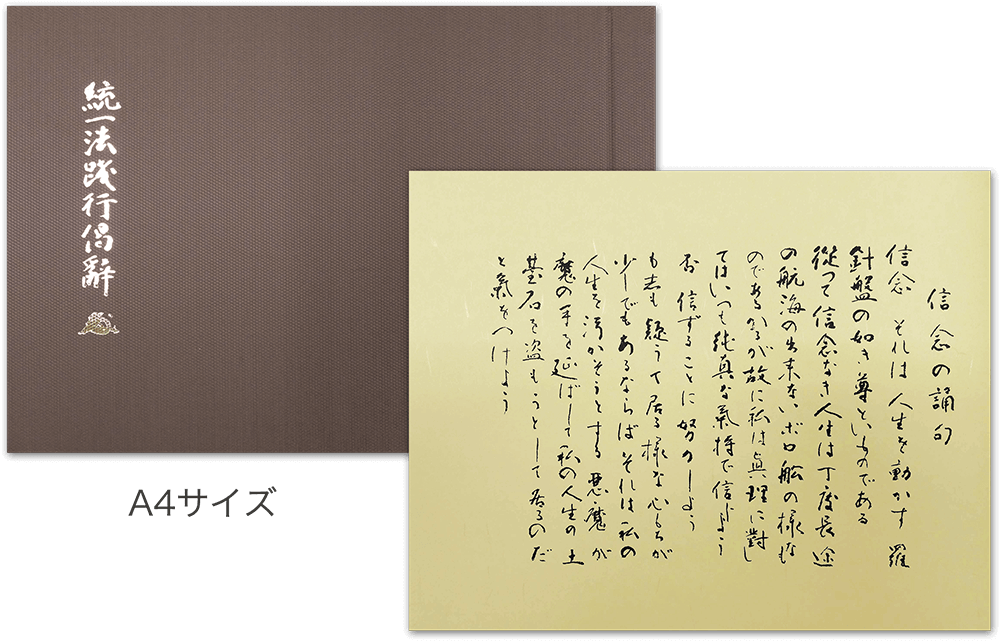 統一法踐行偈辭
A4サイズ
信念の誦句
信念 それは人生を動かす羅
針盤の如き尊といものである
従って信念なき人生は丁度長途
の航海の出来ないボロ舩の様なも
のであるかるが故に私は眞理に對し
てはいつも純真な氣持で信じよう
否 信ずることに努力しよう
も志も疑うて居る様な心もちが
少しでもあるならばそれは私の
人生を汚かそうとする悪魔が
魔の手を延ばして私の人生の土
臺石を盗もうとして居るのだ
と氣をつけよう